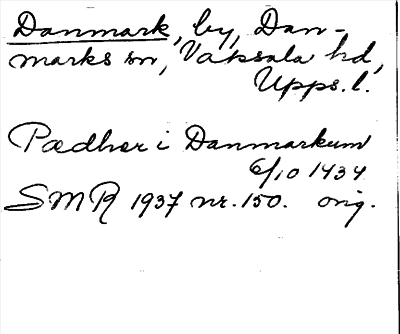 Danmark, by, Dan-
marks sn, Vaksala hd,
Upps. l.
Pædher i Danmarkum
6/10 1434
SMR 1937 nr. 150. orig.